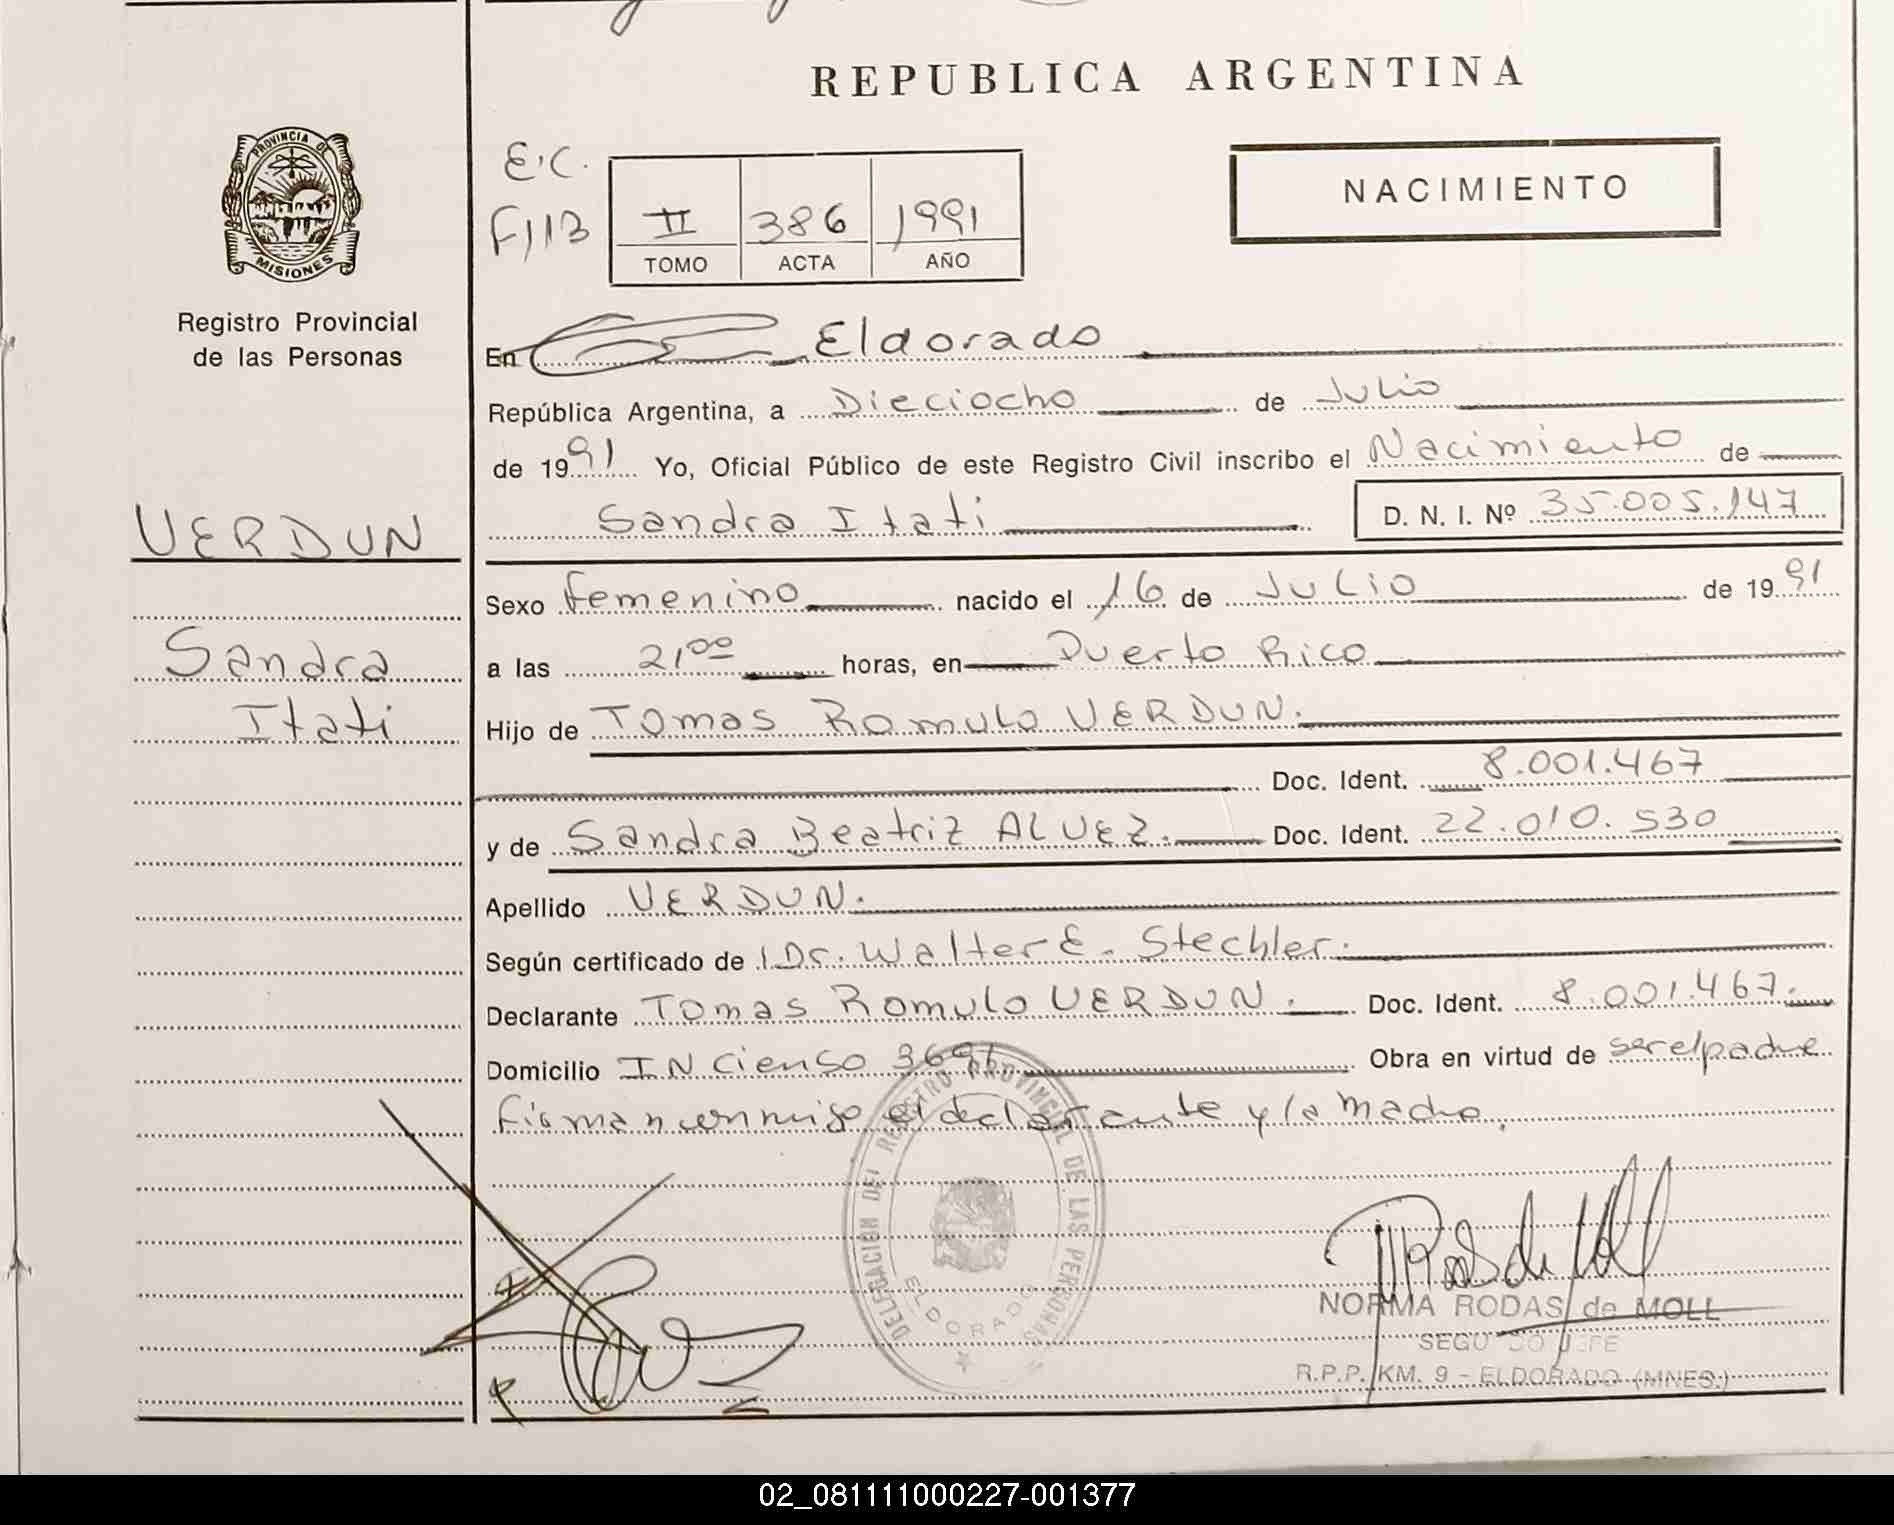 REPUBLICA ARGENTINA
PROVINCIA DE
MISIONES
Registro Provincial
de las Personas
E.C.
F113
II 386 1991
TOMO ACTA AÑO
NACIMIENTO
VERDUN
Sandra
Itati
En Eldorado
República Argentina, a Dieciocho de Julio
de 1991 Yo, Oficial Público de este Registro Civil inscribo el Nacimiento de
Sandra Itati D. N. I. Nº 35.005.147
Sexo femenino nacido el 16 de Julio de 1991
a las 21,00 horas, en Puerto Rico
Hijo de Tomas Romulo VERDUN.
Doc. Ident. 8.001.467
y de Sandra Beatriz ALVEZ. Doc. Ident. 22.010.530
Apellido VERDUN.
Según certificado de Dr. Walter E. Stechler.
Declarante Tomas Romulo VERDUN. Doc. Ident. 8.001.467.
Domicilio INcienso Obra en virtud de ser el padre
firman conmigo el declarante y la madre.
DELEGACION DEL REGISTRO PROVINCIAL DE LAS PERSONAS
ELDORADO
NORMA RODAS de MOLL
JEFE
R.P.P. KM. 9 - ELDORADO (MNES.)
02_081111000227-001377